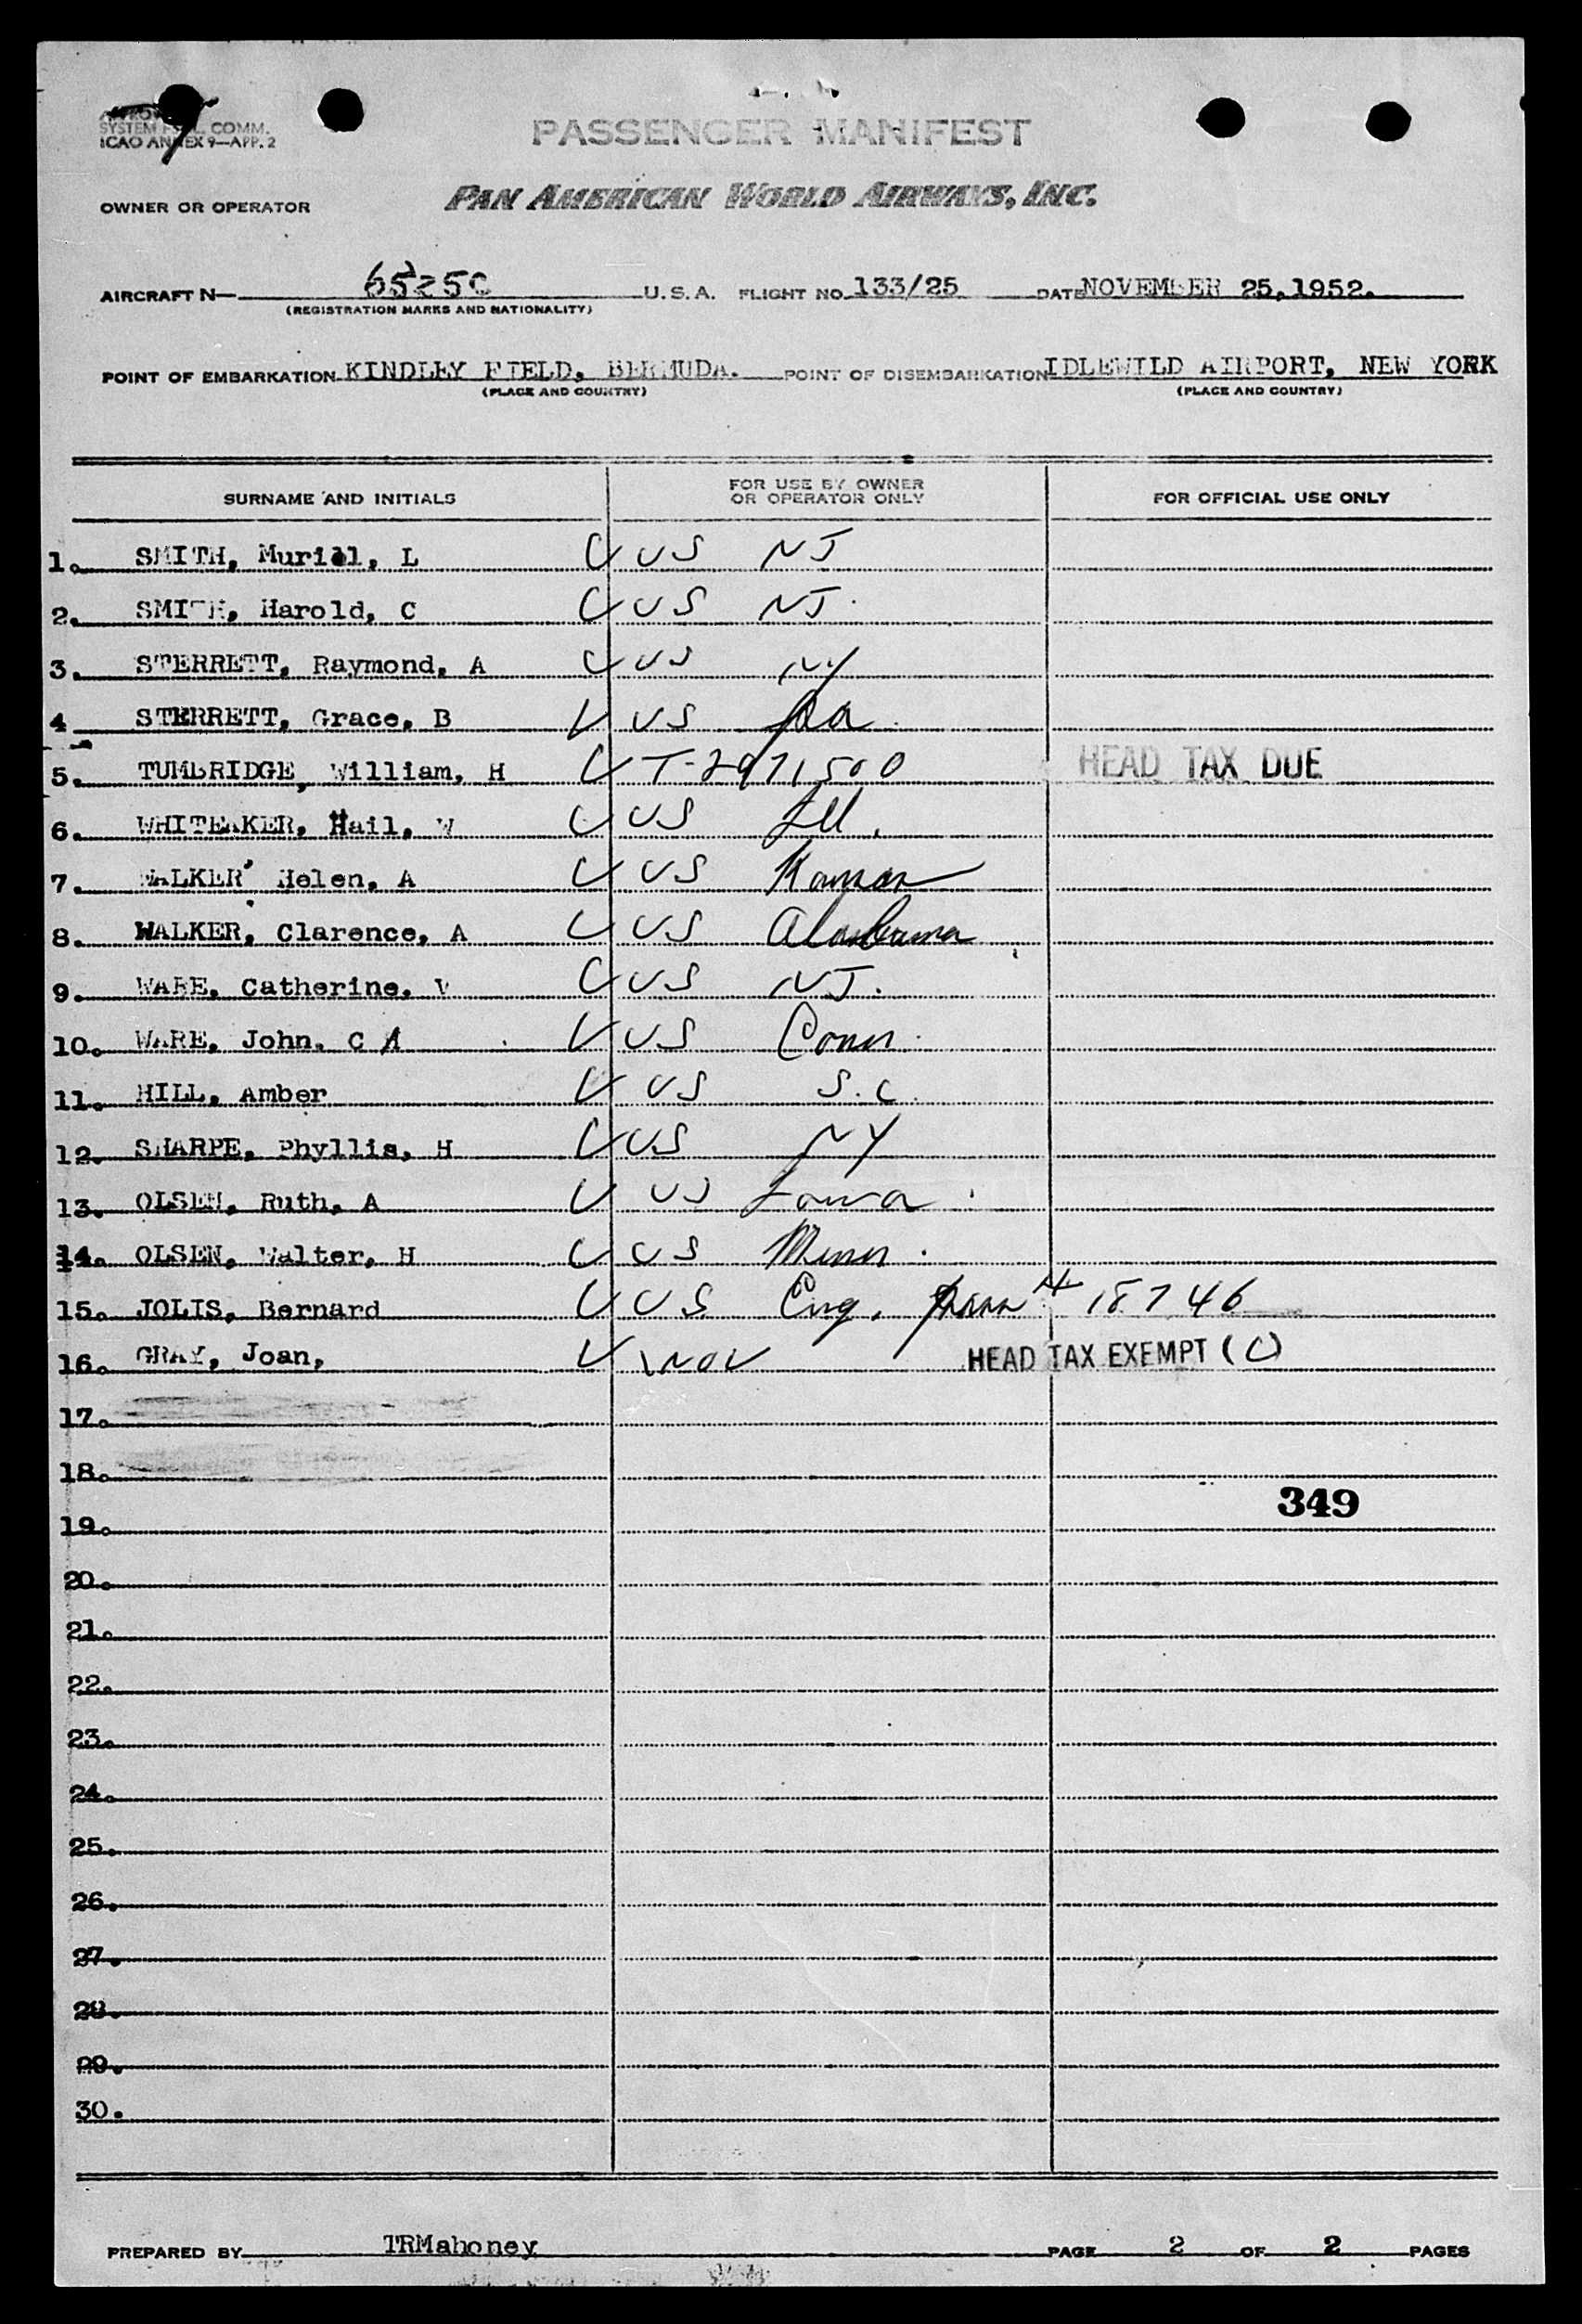 SYSTEM COMM.
ICAO ANNEX 9—APP. 2
PASSENGER MANIFEST
OWNER OR OPERATOR PAN AMERICAN WORLD AIRWAYS, INC.
AIRCRAFT N— U.S.A. FLIGHT NO. 133/25 DATE NOVEMBER 25, 1952.
(REGISTRATION MARKS AND NATIONALITY)
POINT OF EMBARKATION KINDLEY FIELD, BERMUDA. POINT OF DISEMBARKATION IDLEWILD AIRPORT, NEW YORK
(PLACE AND COUNTRY) (PLACE AND COUNTRY)
SURNAME AND INITIALS FOR USE BY OWNER OR OPERATOR ONLY FOR OFFICIAL USE ONLY
1. SMITH, Muriel, L US NJ
2. SMITH, Harold, C US NJ.
3. STERRETT, Raymond, A US NY
4 STERRETT, Grace, B US Pa.
5. TUMBRIDGE, William, H T-2971500 HEAD TAX DUE
6. WHITEAKER, Hail, W US Ill.
7. WALKER Helen, A US Kansas
8. WALKER, Clarence, A US Alabama
9. WARE, Catherine, V US NJ.
10. WARE, John, C A US Conn.
11. HILL, Amber US S.C.
12. SHARPE, Phyllis, H US NY
13. OLSEN, Ruth, A US Iowa
14. OLSEN, Walter, H US Minn.
15. JOLIS, Bernard US Eng. # 18746
16. GRAY, Joan, HEAD TAX EXEMPT (C)
17.
18.
349
19.
20.
21.
22.
23.
24.
25.
26.
27.
28.
29.
30.
PREPARED BY TRMahoney PAGE 2 OF 2 PAGES